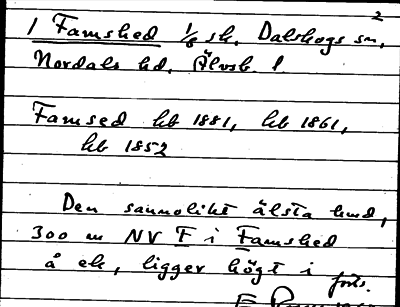 2
1 Famshed 1/8 sk. Dalskogs sn,
Nordals hd, Älvsb. l.
Famsed hb 1881, hb 1861,
hb 1852
Den sannolikt älsta hmd,
300 m NV F i Famshed
å ek, ligger högt i
forts.